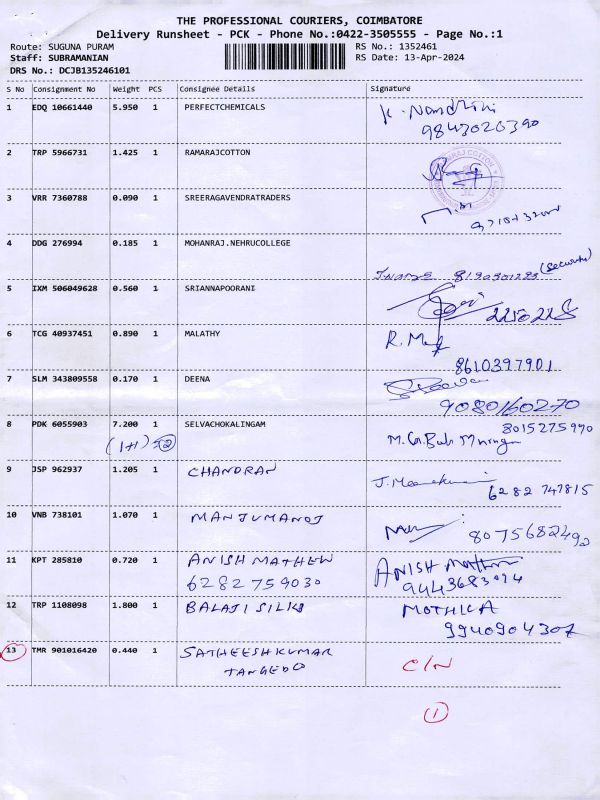 THE PROFESSIONAL COURIERS, COIMBATORE
Delivery Runsheet - PCK - Phone No.:0422-3505555 - Page No.:1
Route: SUGUNA PURAM RS No.: 1352461
Staff: SUBRAMANIAN RS Date: 13-Apr-2024
DRS No.: DCJB135246101
S No Consignment No Weight PCS Consignee Details Signature
1 EDQ 10661440 5.950 1 PERFECTCHEMICALS K. Nandhini
9843020390
2 TRP 5966731 1.425 1 RAMARAJCOTTON
3 VRR 7360788 0.090 1 SREERAGAVENDRATRADERS
4 DDG 276994 0.185 1 MOHANRAJ.NEHRUCOLLEGE
(Security)
5 IXM 506049628 0.560 1 SRIANNAPOORANI
6 TCG 40937451 0.890 1 MALATHY R.
8610397901
7 SLM 343809558 0.170 1 DEENA
9080160270
8 PDK 6055903 7.200 1 SELVACHOKALINGAM 8015275990
(1+1) 2
9 JSP 962937 1.205 1 CHANDRAN J.
6282 747815
10 VNB 738101 1.070 1 MANJUMANOJ
8075682492
11 KPT 285810 0.720 1 ANISH MATHEW ANISH
6282759030 9443683094
12 TRP 1108098 1.800 1 BALAJI SILKS MOTHICA
9940904307
13 TMR 901016420 0.440 1 SATHEESHKUMAR C/N
TANGEDO
1